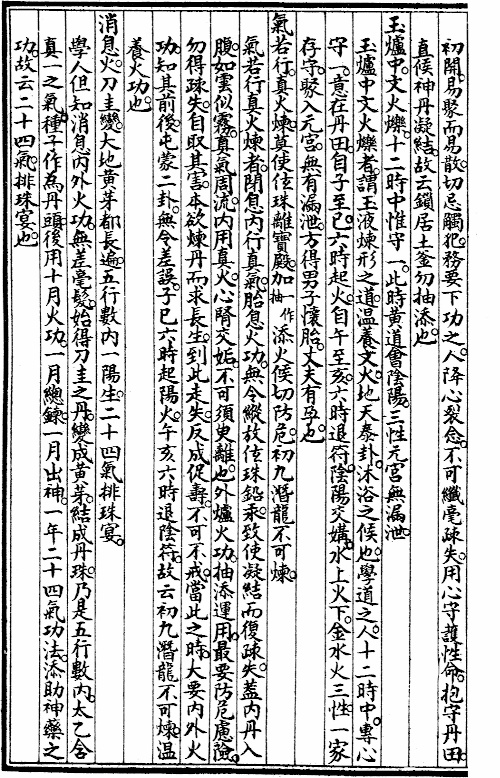 初開易聚而易散切忌觸犯務要下功之人降心裂念不可纖毫疎失用心守護性命抱守丹田
直候神丹凝結故云鎖居土釜勿抽添也
玉爐中文火爍十二時中惟守一此時黃道會陰陽三性元宮無漏泄
玉爐中文火爍者謂玉液煉形之道溫養文火地天泰卦沐浴之候也學道之人十二時中專心
守一意在丹田自子至巳六時起火自午至亥六時退符陰陽交媾水上火下金水火三性一家
存守聚入元宮無有漏泄方得男子懷胎丈夫有孕也
氣若行真火煉莫使玹珠離寶殿加一作抽添火候切防危初九潛龍不可煉
氣若行真火煉者閉息內行真氣胎息火功無令縱放玹珠鉛汞致使凝結而復疎失蓋內丹入
腹如雲似霧真氣周流內用真火心腎交姤不可須臾離也外爐火功抽添運用最要防危慮險
勿得疎失自取其害本欲煉丹而求長生到此走失反成促壽不可不戒當此之時大要內外火
功知其前後屯蒙二卦無令差誤子巳六時起陽火午亥六時退陰符故云初九潛龍不可煉溫
養火功也
消息火刀圭變大地黃芽都長遍五行數內一陽生二十四氣排珠宴
學人但知消息內外火功無差毫髮始得刀圭之丹變成黃芽結成丹珠乃是五行數內太乙含
真一之氣種子作為丹頭後用十月火功一月總鍊一月出神一年二十四氣功法添助神藥之
功故云二十四氣排珠宴也